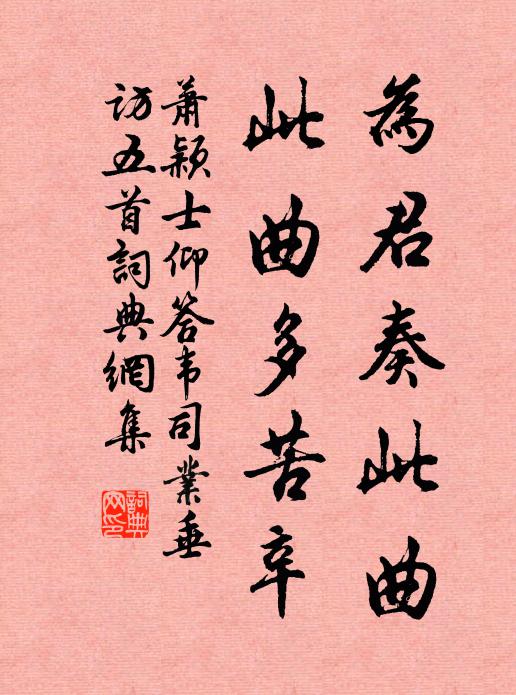 為君奏此曲
此曲多苦辛
蕭穎士仰答韦司業垂
訪五首詞典網集
詞典
网印